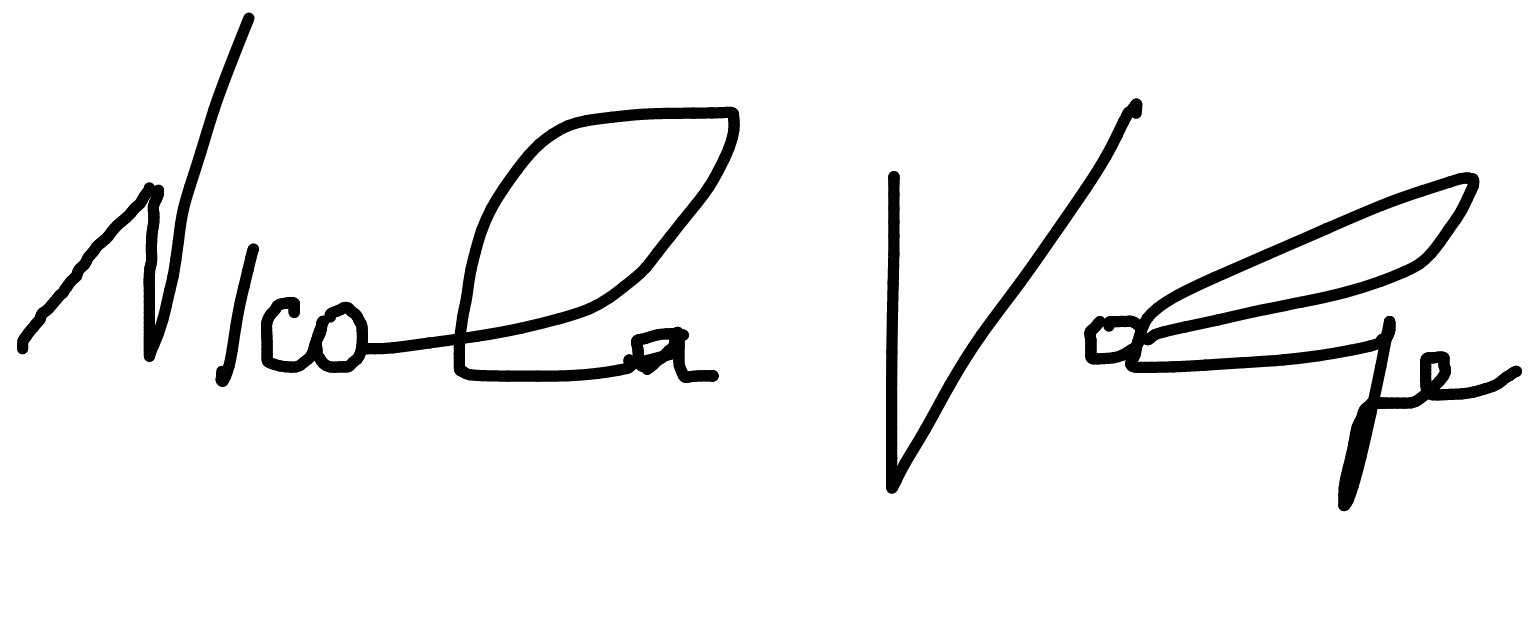 Nicola Volpe